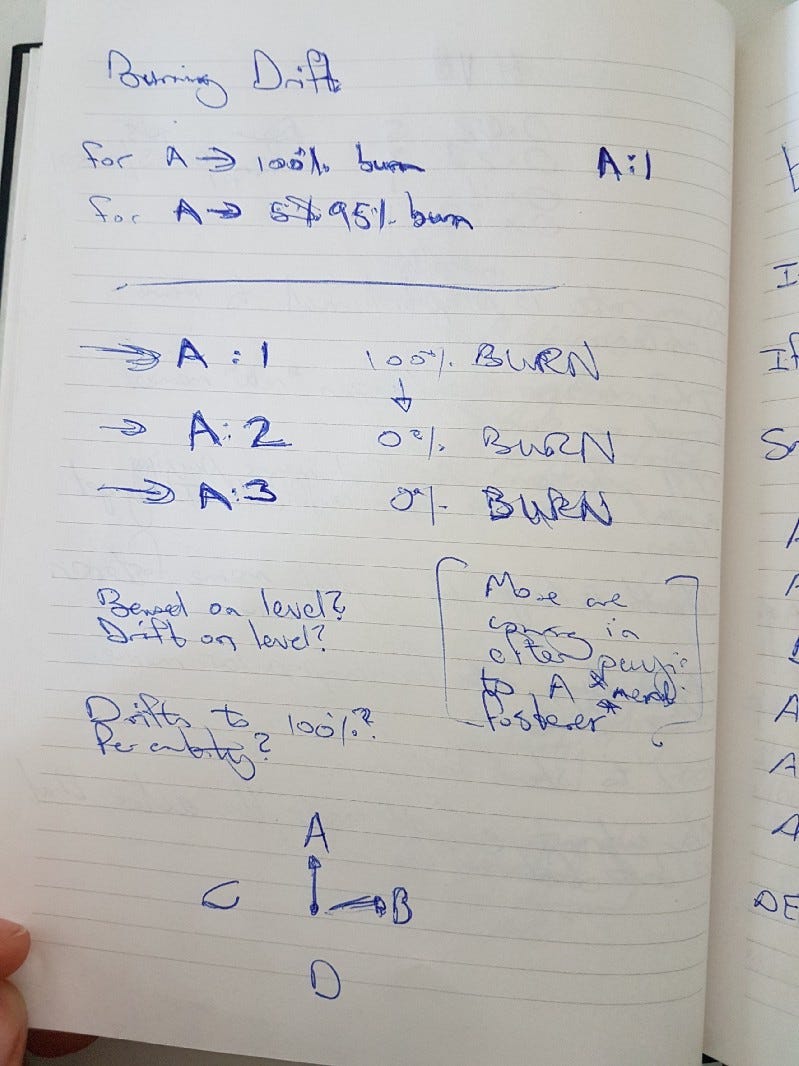 Burning Drift
for A → 100% burn
A:1
for A → 95% burn
→ A:1 100% BURN
↓
→ A:2 0% BURN
→ A:3 0% BURN
Based on level?
Drift on level?
More are
coming in
after
to A
fosterer
Drifts to 100%?
Per entity?
A
C
B
D
If
DE